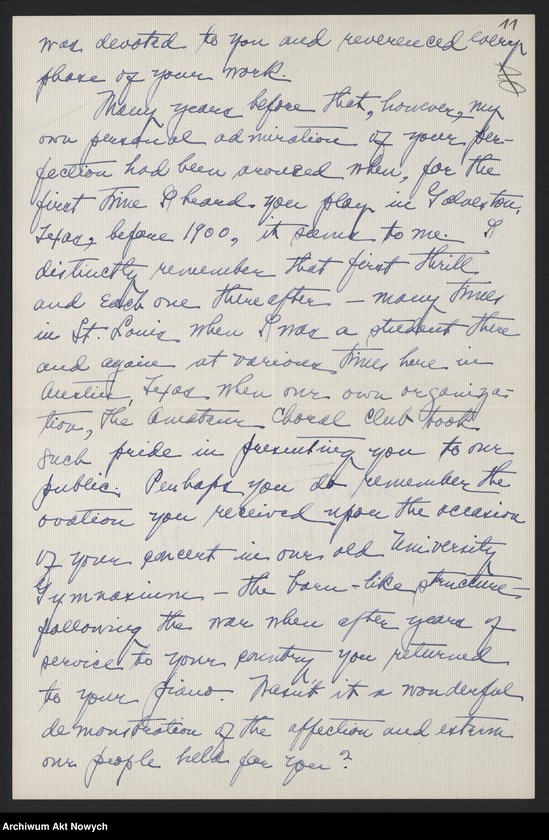 11
was devoted to you and reverenced every
phase of your work.
Many years before that, however, my
own personal admiration of your per-
fection had been aroused when, for the
first time I heard you play in Galveston,
Texas, before 1900, it seems to me. I
distinctly remember that first thrill
and each one thereafter — many times
in St. Louis when I was a student there
and again at various times here in
Austin, Texas when our own organiza-
tion, The Amateur Choral Club took
such pride in presenting you to our
public. Perhaps you do remember the
ovation you received upon the occasion
of your concert in our old University
Gymnasium — the barn-like structure —
following the war when after years of
service to your country you returned
to your piano. Wasn't it a wonderful
demonstration of the affection and esteem
our people held for you?
Archiwum Akt Nowych